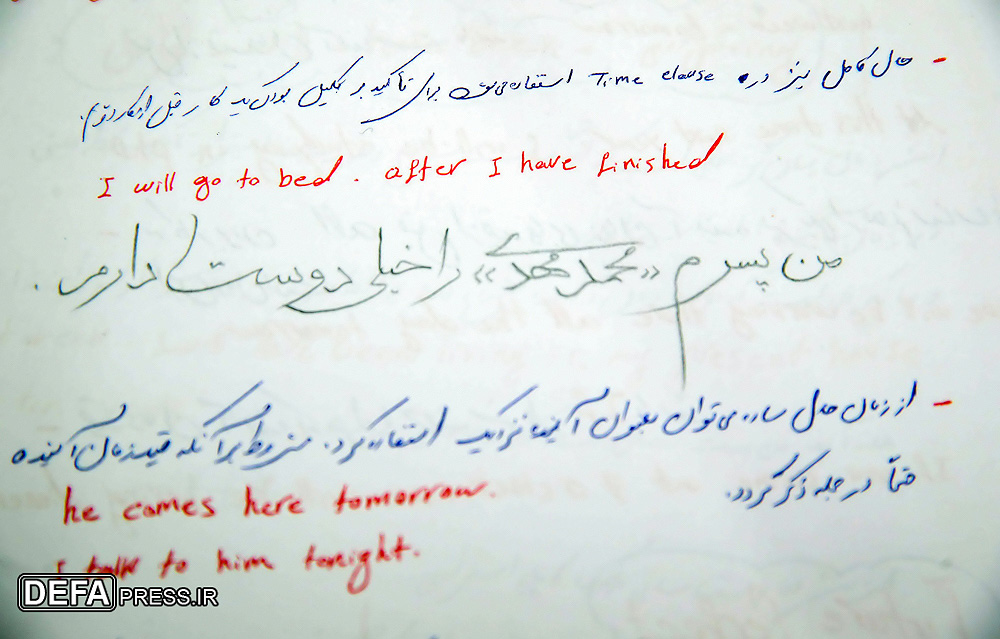 - حال کامل نیز در Time clause استفاده می‌شود برای تأکید بر تکمیل بودن یک کار قبل از کار دوم.
I will go to bed. after I have finished
من پسرم «محمد مهدی» را خیلی دوست دارم.
- از زمان حال ساده می‌توان بعنوان آینده نزدیک استفاده کرد. مشروط بر آنکه قید زمان آینده
حتماً در جمله ذکر گردد.
he comes here tomorrow.
I talk to him tonight.
DEFAPRESS.IR